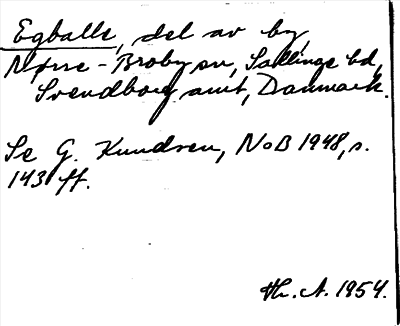 Egballe, del av by,
Nørre-Broby sn, Sallinge hd,
Svendborg amt, Danmark.
Se G. Knudsen, NoB 1948, s.
143 ff.
Th. A. 1954.